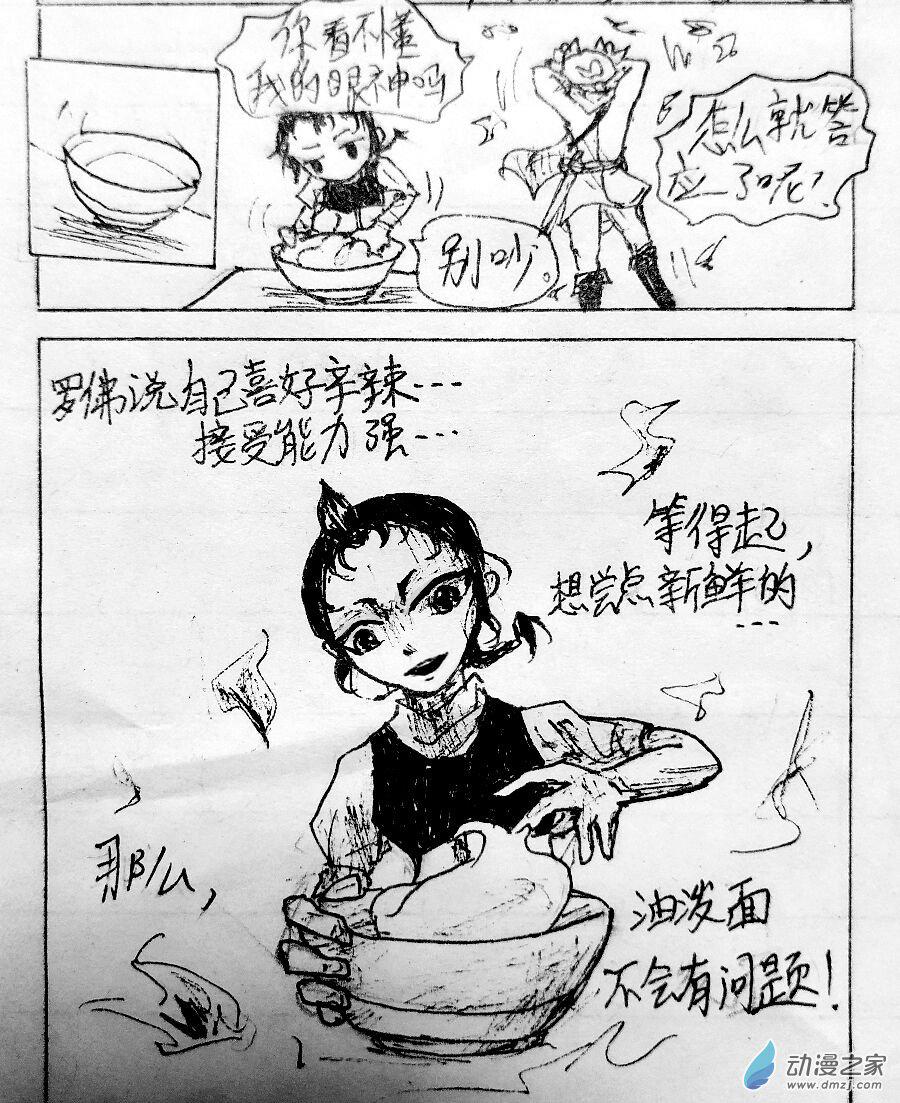 你看不懂
我的眼神吗
怎么就答
应了呢？
别吵。
罗佛说自己喜好辛辣…
接受能力强…
等得起，
想尝点新鲜的
…
那么，
油泼面
不会有问题！
动漫之家
www.dmzj.com